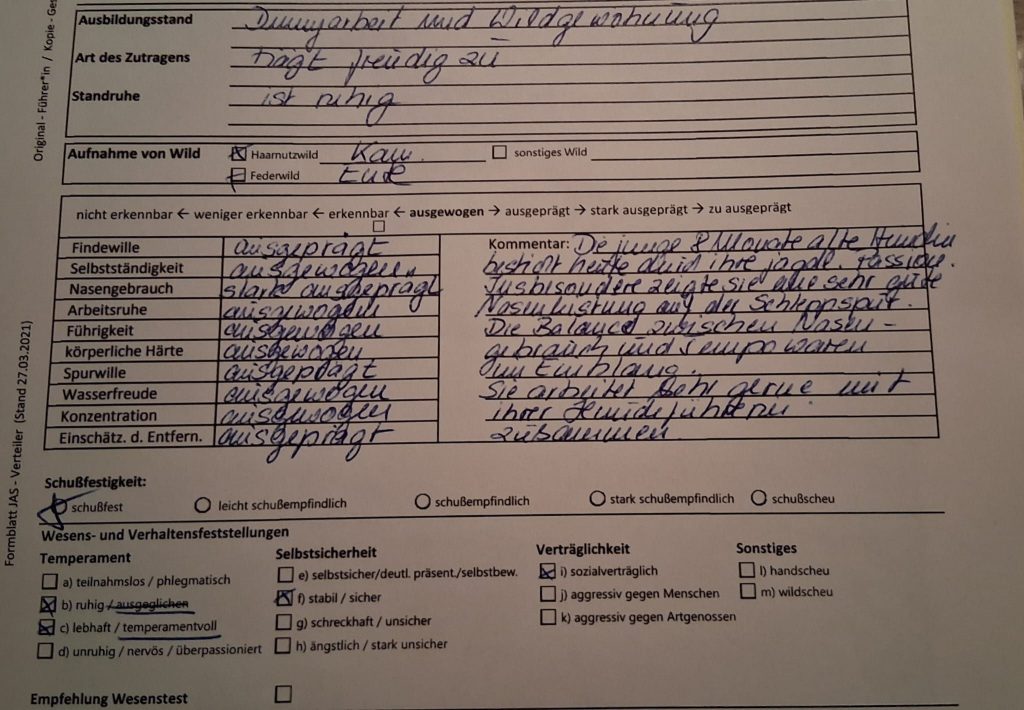 Original - Führer*in / Kopie - Ges
Formblatt JAS - Verteiler (Stand 27.03.2021)
Ausbildungsstand Dummyarbeit und Wildgewöhnung
Art des Zutragens trägt freudig zu
Standruhe ist ruhig
Aufnahme von Wild Haarnutzwild Kan. sonstiges Wild
Federwild Ente
nicht erkennbar ← weniger erkennbar ← erkennbar ← ausgewogen → ausgeprägt → stark ausgeprägt → zu ausgeprägt
Findewille ausgeprägt Kommentar: Die junge 8 Monate alte Hündin
Selbstständigkeit ausgewogen besticht heute durch ihre jagdl. Passion.
Nasengebrauch stark ausgeprägt Insbesondere zeigte sie eine sehr gute
Arbeitsruhe ausgewogen Nasenleistung auf der Schleppspur.
Führigkeit ausgewogen Die Balance zwischen Nasen-
körperliche Härte ausgewogen gebrauch und Tempo waren
Spurwille ausgeprägt im Einklang.
Wasserfreude ausgewogen Sie arbeitet sehr gerne mit
Konzentration ausgewogen ihrer Hundeführerin
Einschätz. d. Entfern. ausgeprägt zusammen.
Schußfestigkeit:
schußfest leicht schußempfindlich schußempfindlich stark schußempfindlich schußscheu
Wesens- und Verhaltensfeststellungen
Temperament Selbstsicherheit Verträglichkeit Sonstiges
a) teilnahmslos / phlegmatisch e) selbstsicher/deutl. präsent./selbstbew. i) sozialverträglich l) handscheu
b) ruhig / ausgeglichen f) stabil / sicher j) aggressiv gegen Menschen m) wildscheu
c) lebhaft / temperamentvoll g) schreckhaft / unsicher k) aggressiv gegen Artgenossen
d) unruhig / nervös / überpassioniert h) ängstlich / stark unsicher
Empfehlung Wesenstest